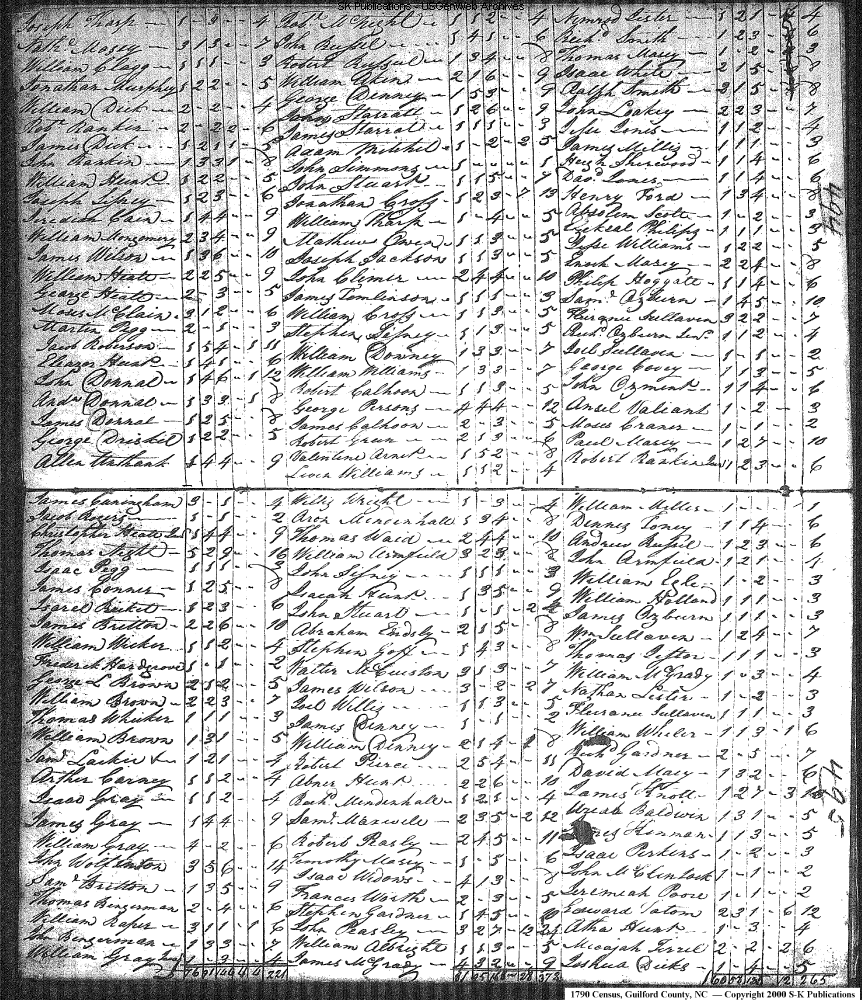 SK Publications - USGenWeb Archives
Joseph Tharp
William Clagg
Jonathan Murphy 1 2 2 - - 5
William Dick 2 - 2 - - 4
Robt Rankin 2 - 2 2 - 6
James Dick 1 2 1 1 - 5
John Rankin 1 3 3 1 - 8
William Hunt 1 2 2 - - 5
William Montgomery 2 3 4 - - 9
James Wilson 1 3 6 - - 10
William Heath 2 2 5 - - 9
George Heath 2 - 3 - - 5
Moses McClain 3 1 2 - - 6
Martin Pegg 2 - 1 - - 3
Jacob Robinson 1 5 4 - 1 11
Eleazor Hunt 1 4 1 - - 6
John Donnal 1 4 6 - 1 12
Andw Donnal 1 3 3 - 1 8
James Donnal 1 2 5 - - 8
George Driskel 1 2 2 - - 5
Allen Unthank 1 4 4 - - 9
Robt McKnight 1 1 2 - - 4
John Russil 1 4 1 - - 6
Robert Russil 1 3 4 - - 8
George Denney 1 5 3 - - 9
John Starratt 1 2 6 - - 9
James Starrat 1 1 1 - - 3
Adam Mitchel 1 - 2 - 2 5
John Simmons 1 - - - - 1
John Stuart 1 1 5 - - 7
Jonathan Cross 1 2 3 - 7 13
William Tharp 1 - 4 - - 5
Mathew Owen 1 1 3 - - 5
Joseph Jackson 1 1 3 - - 5
John Climer 2 4 4 - - 10
James Tomlinson 1 1 1 - - 3
William Cross 1 1 3 - - 5
Stephen Sifney 1 1 3 - - 5
William Downey 1 3 3 - - 7
William Williams 1 3 3 - - 7
Robert Calhoon 1 1 3 - - 5
George Persons 4 4 4 - - 12
James Calhoon 2 - 3 - - 5
Robert Green 2 1 3 - - 6
Valentine Arnet 1 5 2 - - 8
Liven Williams 1 1 2 - - 4
Nymrod Lister
Richd Smith 1 - 2 - - 3
Thomas Macy 1 - 2 - - 3
Isaac White 2 1 5 - - 8
Ralph Smith 2 1 5 - - 8
John Loakey 2 2 3 - - 7
James Millis 1 1 1 - - 3
Hugh Sherwood 1 1 4 - - 6
Davd Jones 1 1 4 - - 6
Henry Ford 1 3 4 - - 8
Absolom Scott 1 - 2 - - 3
Ezekeal Philips 1 1 1 - - 3
Jesse Williams 1 2 2 - - 5
Enoch Macey 2 2 4 - - 8
Philip Hoggatt 1 1 4 - - 6
Saml Ozburn 1 4 5 - - 10
Flurance Sullaven 3 2 2 - - 7
Joel Sullaven 1 - 1 - - 2
George Covey 1 1 3 - - 5
John Ozment 1 1 4 - - 6
Ansel Valeant 1 - 2 - - 3
Moses Craner 1 - 1 - - 2
Paul Macy 1 2 7 - - 10
Robert Rankin Junr 1 2 3 - - 6
494
James Cuningham 3 - 1 - - 4
Jacob Rogers 1 - 1 - - 2
Thomas Night 5 2 9 - - 16
Isaac Pegg 1 1 1 - - 3
James Conner 1 2 5 - - 8
James Britton 2 2 6 - - 10
William Wicker 1 1 2 - - 4
Frederick Hardgrove 1 - 1 - - 2
George L Brown 2 1 2 - - 5
William Brown 2 2 3 - - 7
Thomas Whicker 1 1 1 - - 3
William Brown 1 3 1 - - 5
Arthur Carney 1 1 2 - - 4
Isaac Gray 1 1 2 - - 4
James Gray 1 4 4 - - 9
William Gray 4 - 2 - - 6
Saml Britton 1 3 5 - - 9
Thomas Bengerman 2 - 4 - - 6
William Raper 3 1 1 - 1 6
John Bengerman 1 3 3 - - 7
William Gray Junr 1 - 3 - - 4
221
Willis Wright 1 - 3 - - 4
Aron Mendenhall 1 3 4 - - 8
Thomas Waid 2 4 4 - - 10
William Armfield 3 2 3 - - 8
John Sifney 1 1 1 - - 3
Isaeah Hunt 1 3 5 - - 9
John Stuart 1 - 1 - 2 4
Abraham Endsly 2 1 5 - - 8
Stephen Goff 1 4 3 - - 8
Walter McCuiston 3 1 3 - - 7
James Wilson 3 - 2 - 2 7
Joel Willis 1 1 3 - - 5
James Denney 1 - 1 - - 2
William Denney 2 1 4 - 1 8
Robert Pierce 2 5 4 - - 11
Abner Hunt 2 2 6 - - 10
Richd Mendenhall 1 2 1 - - 4
Saml Maxwell 2 3 5 - 2 12
Robert Peasly 2 4 5 - - 11
Timothy Macey 1 - 5 - - 6
Isaac Widows 4 1 3 - - 8
Frances Worth 2 - 3 - - 5
Stephen Gardner 1 4 5 - - 10
John Peasley 2 3 7 - 12 24
William Albright 1 1 3 - - 5
James McGrady 4 3 2 - - 9
373
William Millis 1 - - - - 1
Dennis Toney 1 1 4 - - 6
Andrew Russil 1 2 3 - - 6
John Armfield 1 2 1
William Egle 1 - 2 - - 3
William Holland 1 1 1 - - 3
James Ozburn 1 1 1 - - 3
Wm Sullaven 1 2 4 - - 7
William McGrady 1 - 3 - - 4
Nathan Lister 1 - 2 - - 3
Flurance Sullaven 1 1 1 - - 3
William Wheler 1 1 3 - 1 6
Richd Gardner 2 - 5 - - 7
David Macy 1 3 2 - - 6
James Knott 1 2 7 - 3 13
Uzeah Baldwin 1 3 1 - - 5
Hinman 1 1 3 - - 5
Isaac Perkins 1 - 2 - - 3
John McClintock 1 - 1 - - 2
Jeremiah Poore 1 - 1 - - 2
Edward Tatom 2 3 1 - 6 12
Asha Hunt 1 - 3 - - 4
Micajah Terrel 2 - 2 - 2 6
Joshua Dicks 1 - 4 - - 5
265
495
1790 Census, Guilford County, NC — Copyright 2000 S-K Publications